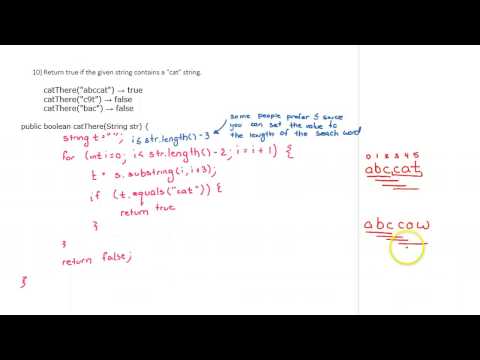 10) Return true if the given string contains a "cat" string.
catThere("abccat") → true
catThere("c9t") → false
catThere("bac") → false
public boolean catThere(String str) {
some people prefer 3 since
you can set the value to
the length of the search word
string t = "";
i ≤ str.length() - 3
for (int i = 0; i < str.length() - 2; i = i + 1) {
t = s.substring(i, i+3);
if (t.equals("cat")) {
return true
}
}
return false;
}
0 1 2 3 4 5
abccat
abccow